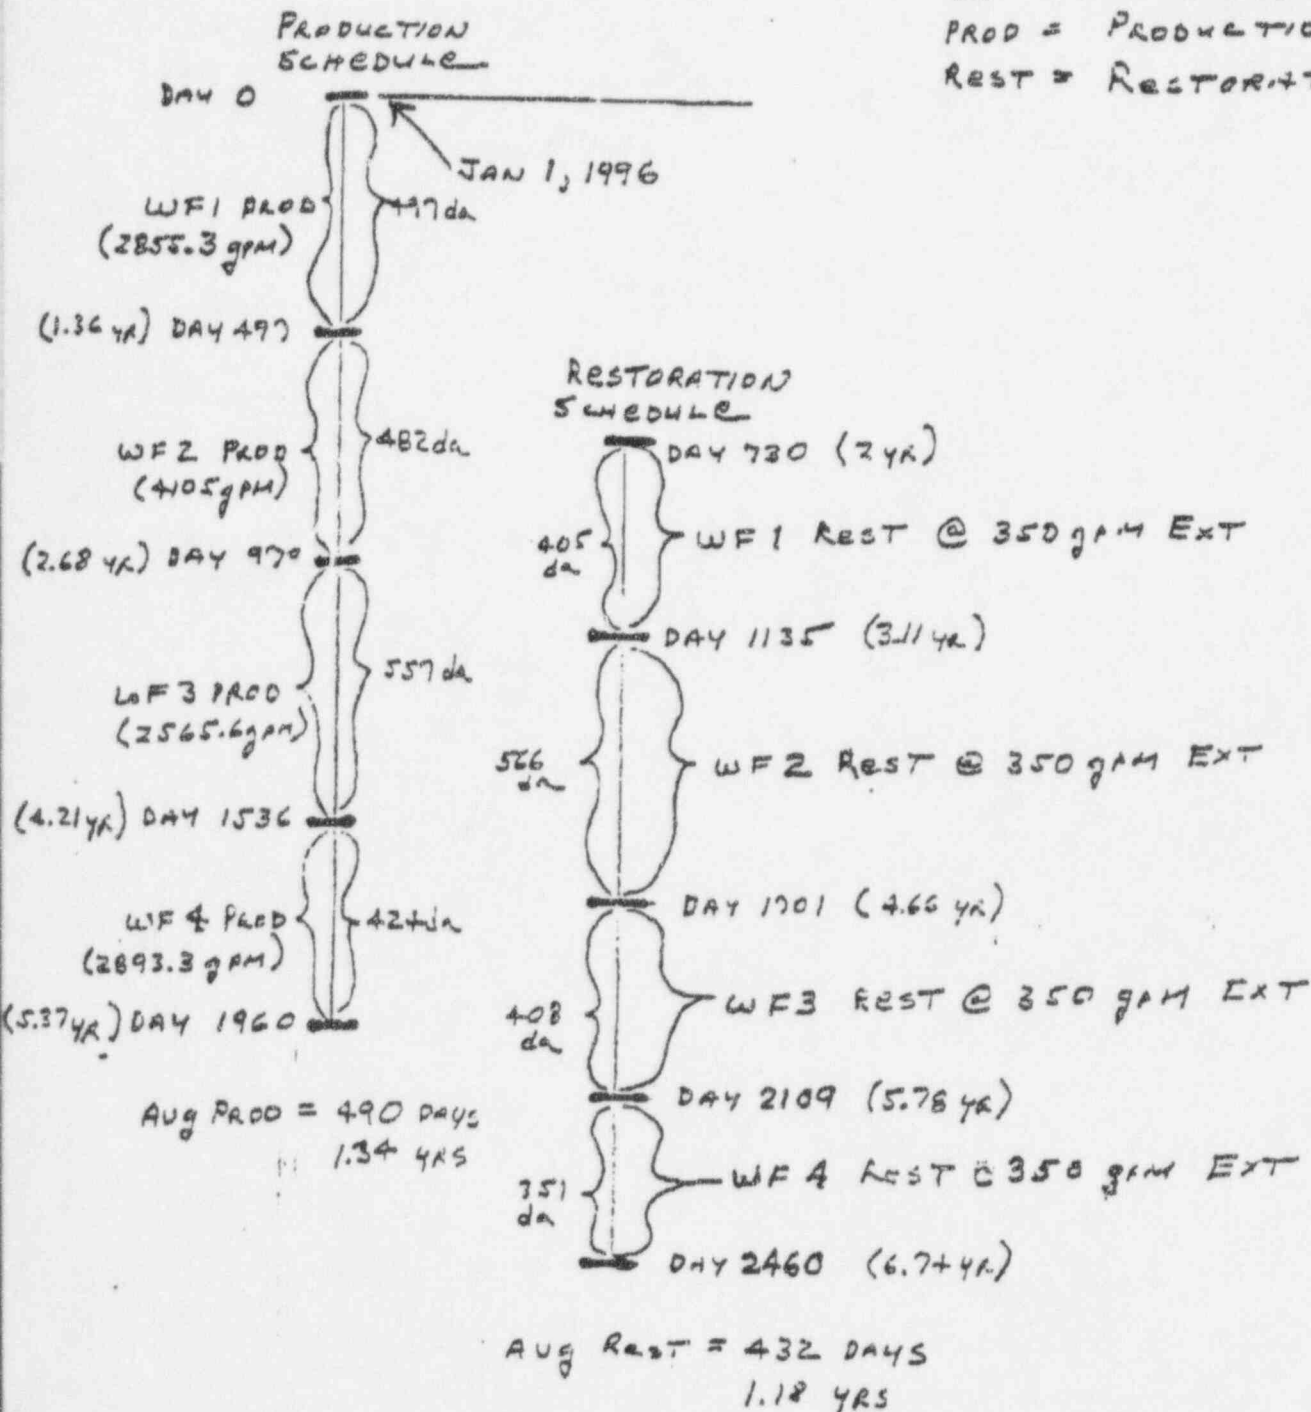 PRODUCTION
SCHEDULE
PROD = PRODUCTIO
REST = RESTORAT
DAY 0
JAN 1, 1996
WF1 PROD
(2855.3 gpm)
497 da
(1.36 yR) DAY 497
WF 2 PROD
(4105 gpm)
482 da
(2.68 yR) DAY 979
WF 3 PROD
(2565.6 gpm)
557 da
(4.21 yR) DAY 1536
WF 4 PROD
(2893.3 gpm)
424 da
(5.37 yR) DAY 1960
Avg PROD = 490 DAYS
1.34 YRS
RESTORATION
SCHEDULE
DAY 730 (2 yR)
405
da
WF 1 REST @ 350 gpm EXT
DAY 1135 (3.11 yR)
566
da
WF 2 REST @ 350 gpm EXT
DAY 1701 (4.66 yR)
408
da
WF3 REST @ 350 gpm EXT
DAY 2109 (5.78 yR)
351
da
WF 4 REST @ 350 gpm EXT
DAY 2460 (6.74 yR)
Avg REST = 432 DAYS
1.18 YRS